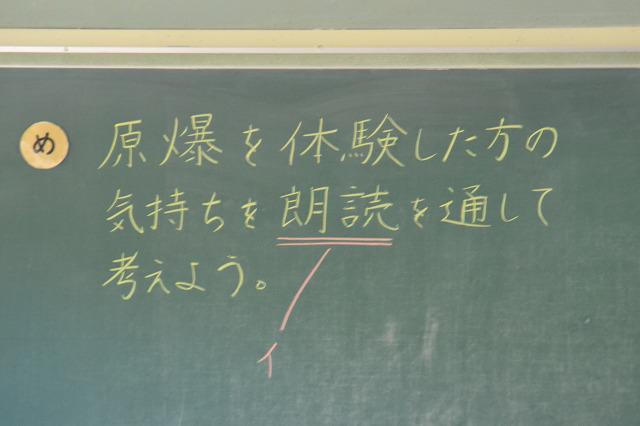 め
原爆を体験した方の
気持ちを朗読を通して
考えよう。
イ